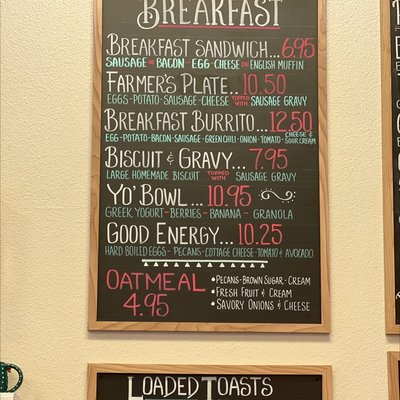 BREAKFAST
BREAKFAST SANDWICH... 6.95
SAUSAGE OR BACON - EGG - CHEESE ON ENGLISH MUFFIN
FARMER'S PLATE.. 10.50
EGGS-POTATO-SAUSAGE-CHEESE TOPPED WITH SAUSAGE GRAVY
BREAKFAST BURRITO... 12.50
EGG-POTATO-BACON-SAUSAGE-GREEN CHILI-ONION-TOMATO-CHEESE & SOUR CREAM
BISCUIT & GRAVY... 7.95
LARGE HOMEMADE BISCUIT TOPPED WITH SAUSAGE GRAVY
YO' BOWL... 10.95
GREEK YOGURT - BERRIES - BANANA - GRANOLA
GOOD ENERGY... 10.25
HARD BOILED EGGS - PECANS-COTTAGE CHEESE-TOMATO & AVOCADO
OATMEAL 4.95
• PECANS-BROWN SUGAR-CREAM
• FRESH FRUIT & CREAM
• SAVORY ONIONS & CHEESE
LOADED TOASTS